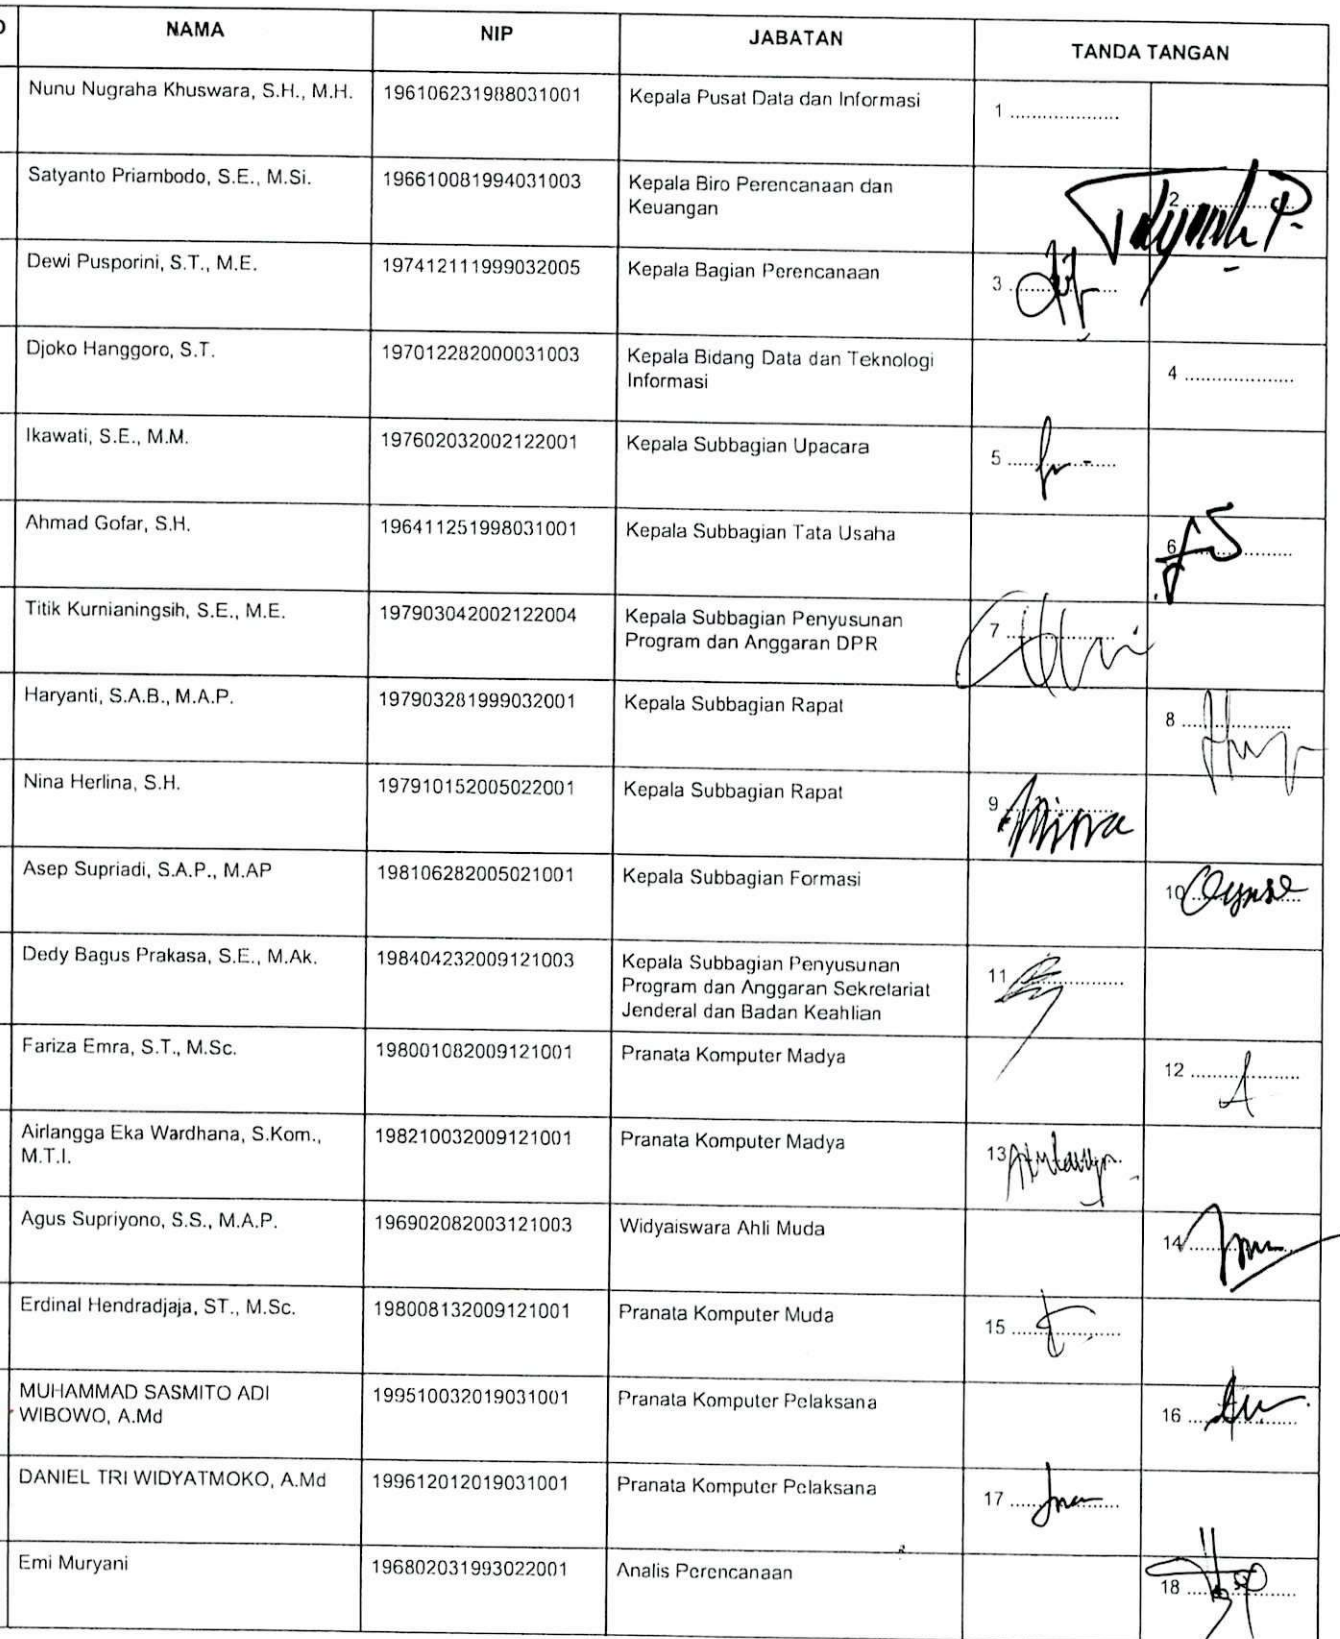 NAMA NIP JABATAN TANDA TANGAN
Nunu Nugraha Khuswara, S.H., M.H. 196106231988031001 Kepala Pusat Data dan Informasi 1 ....................
Satyanto Priambodo, S.E., M.Si. 196610081994031003 Kepala Biro Perencanaan dan
Keuangan 2 ....................
Dewi Pusporini, S.T., M.E. 197412111999032005 Kepala Bagian Perencanaan 3 ....................
Djoko Hanggoro, S.T. 197012282000031003 Kepala Bidang Data dan Teknologi
Informasi 4 ....................
Ikawati, S.E., M.M. 197602032002122001 Kepala Subbagian Upacara 5 ....................
Ahmad Gofar, S.H. 196411251998031001 Kepala Subbagian Tata Usaha 6 ....................
Titik Kurnianingsih, S.E., M.E. 197903042002122004 Kepala Subbagian Penyusunan
Program dan Anggaran DPR 7 ....................
Haryanti, S.A.B., M.A.P. 197903281999032001 Kepala Subbagian Rapat 8 ....................
Nina Herlina, S.H. 197910152005022001 Kepala Subbagian Rapat 9 ....................
Asep Supriadi, S.A.P., M.AP 198106282005021001 Kepala Subbagian Formasi 10 ....................
Dedy Bagus Prakasa, S.E., M.Ak. 198404232009121003 Kepala Subbagian Penyusunan
Program dan Anggaran Sekretariat
Jenderal dan Badan Keahlian 11 ....................
Fariza Emra, S.T., M.Sc. 198001082009121001 Pranata Komputer Madya 12 ....................
Airlangga Eka Wardhana, S.Kom.,
M.T.I. 198210032009121001 Pranata Komputer Madya 13
Agus Supriyono, S.S., M.A.P. 196902082003121003 Widyaiswara Ahli Muda 14 ....................
Erdinal Hendradjaja, ST., M.Sc. 198008132009121001 Pranata Komputer Muda 15 ....................
MUHAMMAD SASMITO ADI
WIBOWO, A.Md 199510032019031001 Pranata Komputer Pelaksana 16 ....................
DANIEL TRI WIDYATMOKO, A.Md 199612012019031001 Pranata Komputer Pelaksana 17 ....................
Emi Muryani 196802031993022001 Analis Perencanaan 18 ....................